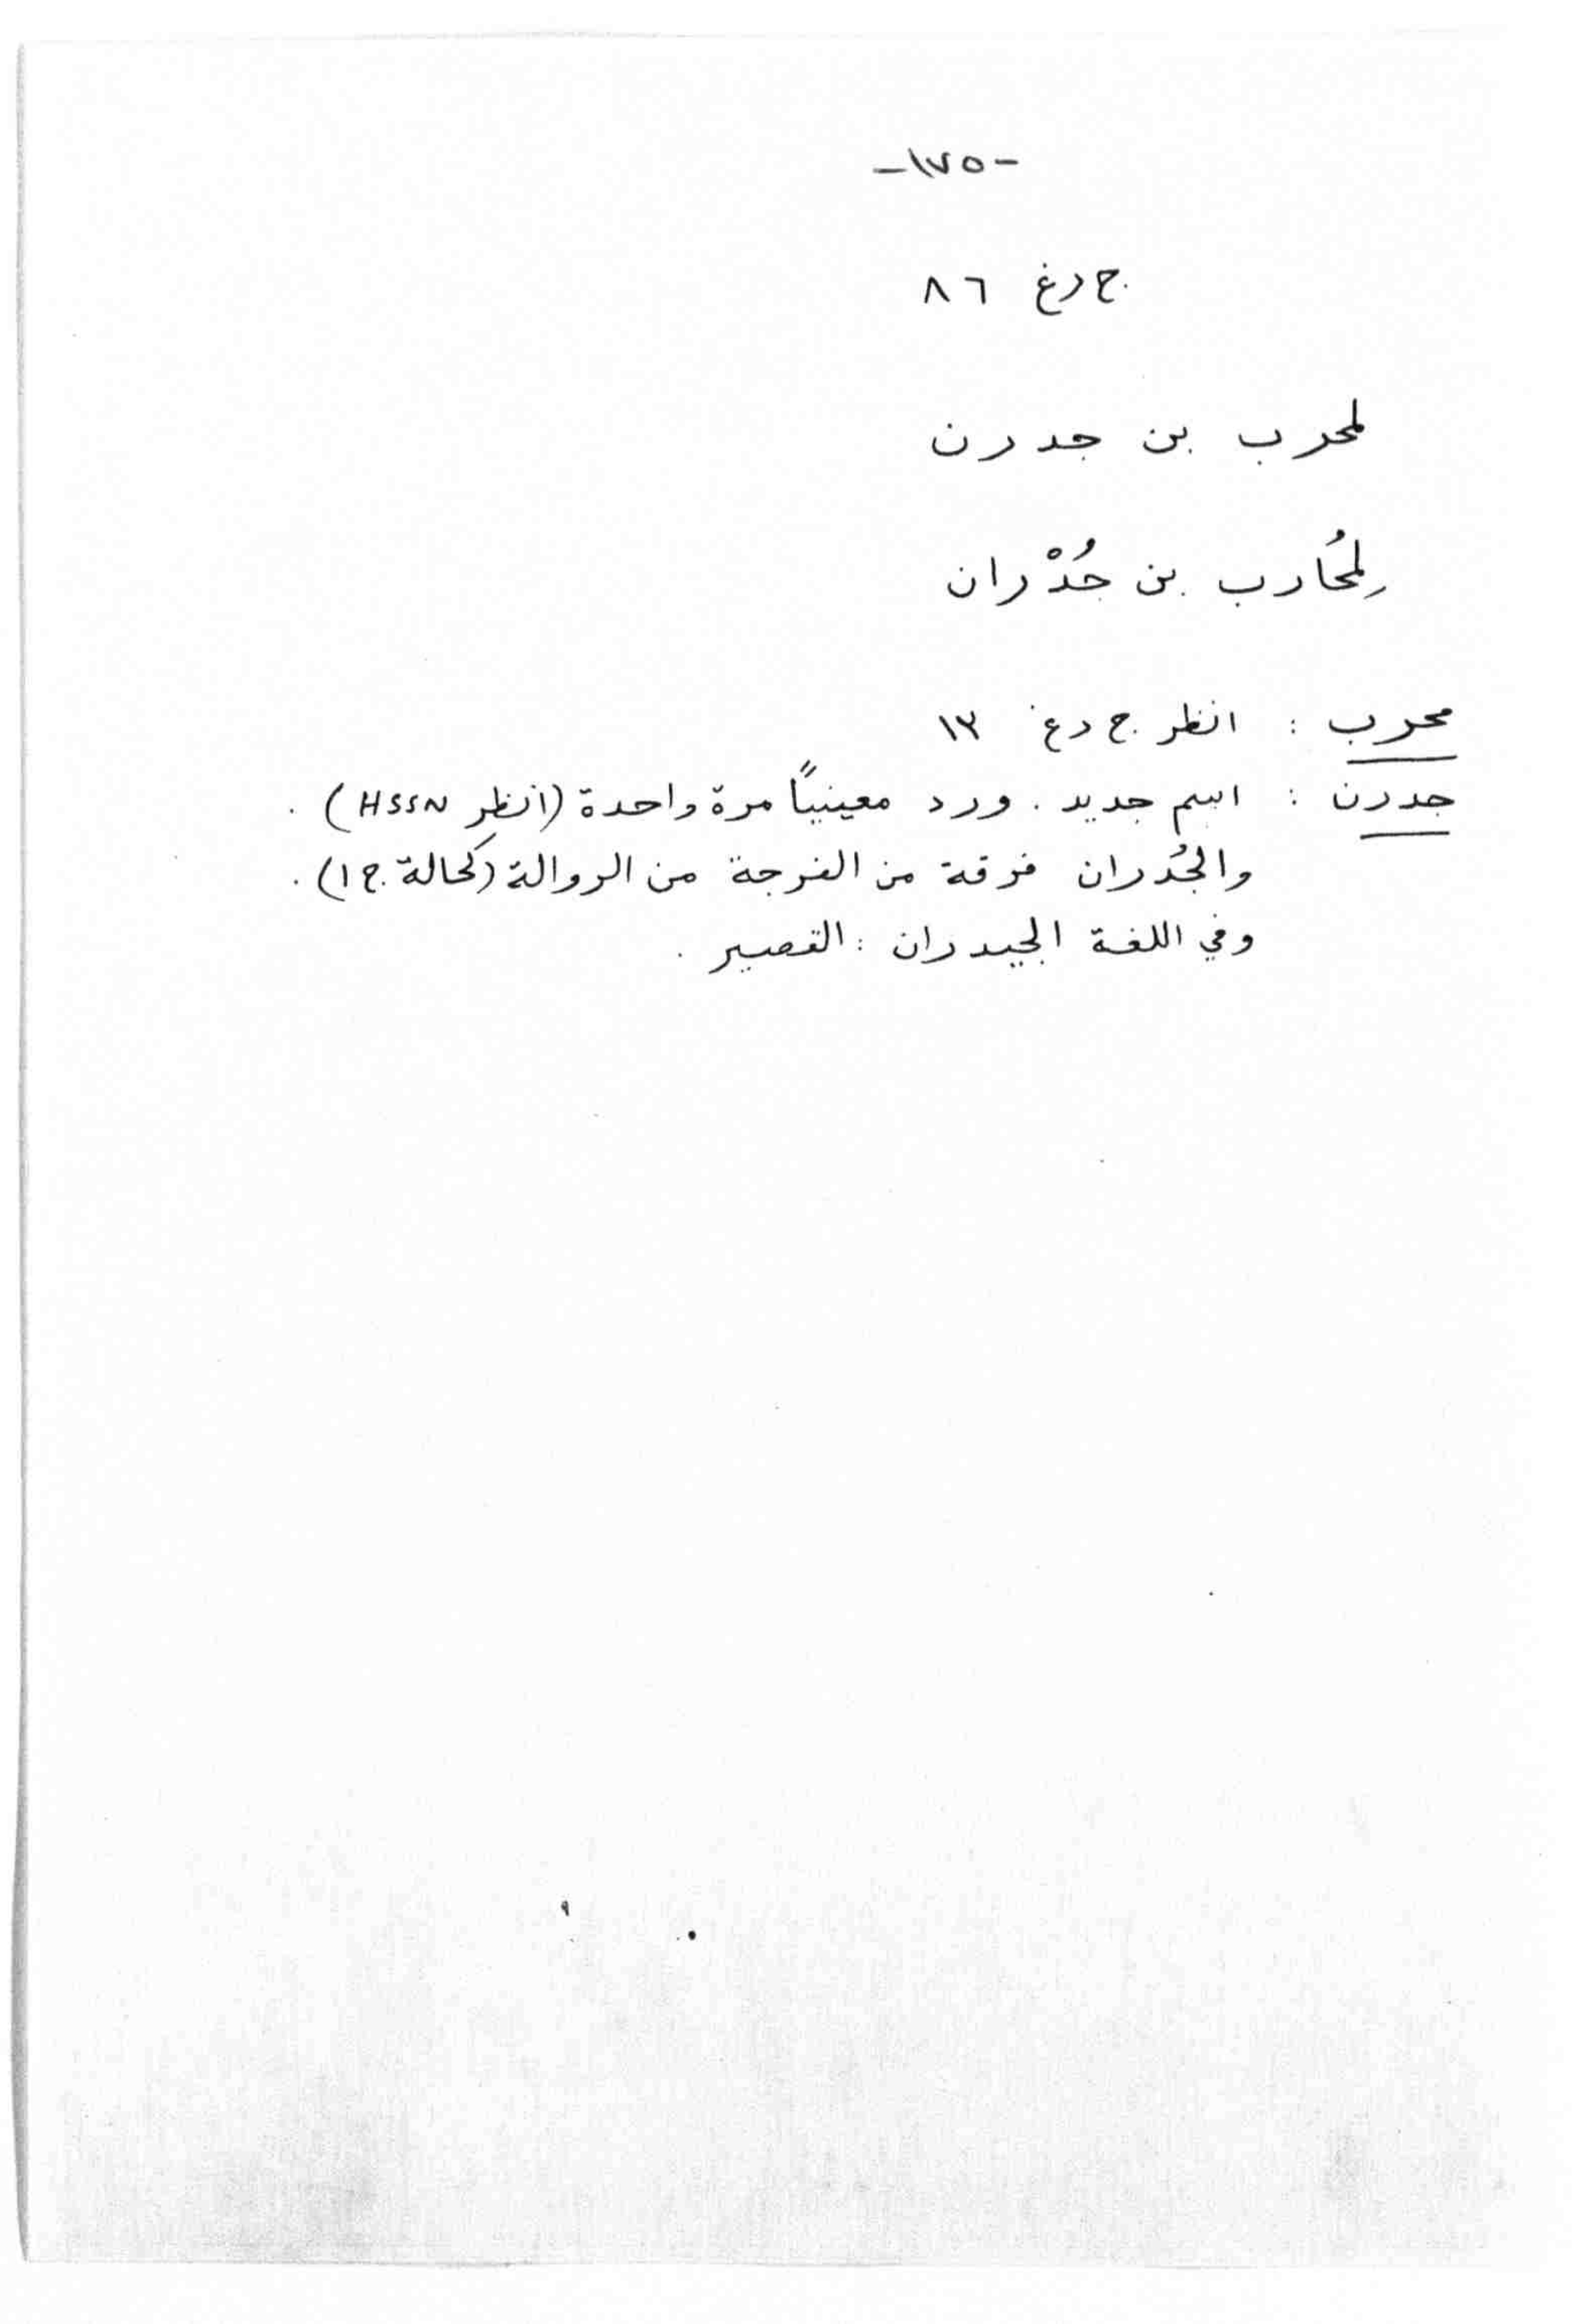 -١٧٥-
ج دغ ٨٦
لمحرب بن جدرن
لِمُحارب بن جُدْران
محرب : انظر ج دغ ١٣
جدرن : اسم جديد . ورد معينيًا مرة واحدة (انظر HSSN) .
والجُدران فرقة من الفرجة من الروالة (كحالة ج ١) .
وفي اللغة الجيدران : القصير .